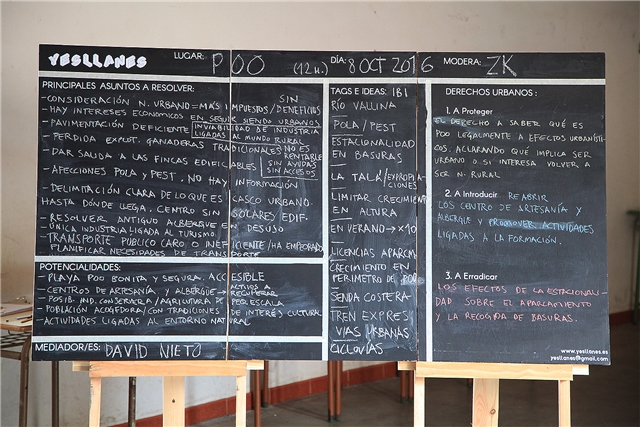 YESLLANES
LUGAR: POO (12 H.)
DÍA: 8 OCT 2016
MODERA: ZK
PRINCIPALES ASUNTOS A RESOLVER:
-CONSIDERACIÓN N. URBANO = MÁS IMPUESTOS / SIN BENEFICIOS
- HAY INTERESES ECONÓMICOS EN SEGUIR SIENDO URBANOS
- PAVIMENTACIÓN DEFICIENTE
INVIABILIDAD DE INDUSTRIA
LIGADAS AL MUNDO RURAL
- PERDIDA EXPLOT. GANADERAS TRADICIONALES
NO ES
RENTABLE
SIN AYUDAS
SIN ACCESOS
DAR SALIDA A LAS FINCAS EDIFICABLES
- AFECCIONES POLA Y PEST. NO HAY INFORMACIÓN
- DELIMITACIÓN CLARA DE LO QUE ES CASCO URBANO.
HASTA DÓNDE LLEGA. CENTRO SIN SOLARES EDIF.
- RESOLVER ANTIGUO ALBERGUE EN DESUSO
- ÚNICA INDUSTRIA LIGADA AL TURISMO
- TRANSPORTE PÚBLICO CARO O INEFICIENTE / HA EMPEORADO
PLANIFICAR NECESIDADES DE TRANSPORTE
POTENCIALIDADES:
- PLAYA POO BONITA Y SEGURA. ACCESIBLE
- CENTROS DE ARTESANÍA Y ALBERGUE → ACTIVOS A RECUPERAR
- POSIB. IND. CONSERVERA / AGRICULTURA DE PEQ. ESCALA
- POBLACIÓN ACOGEDORA / CON TRADICIONES DE INTERÉS CULTURAL
- ACTIVIDADES LIGADAS AL ENTORNO NATURAL
MEDIADOR/ES: DAVID NIETO
TAGS E IDEAS: IBI
RÍO VALLINA
POLA / PEST
ESTACIONALIDAD
EN BASURAS
LA TALÁ / EXPROPIA-
CIONES
LIMITAR CRECIMIENTO
EN ALTURA
EN VERANO → x10
LICENCIAS APARCM.
CRECIMIENTO EN
PERÍMETRO DE POO
SENDA COSTERA
TREN EXPRES
VIAS URBANAS
CICLOVÍAS
DERECHOS URBANOS:
1. A Proteger
EL DERECHO A SABER QUÉ ES
POO LEGALMENTE A EFECTOS URBANÍSTI-
COS. ACLARANDO QUÉ IMPLICA SER
URBANO O SI INTERESA VOLVER A
SER N. RURAL
2. A Introducir REABRIR
LOS CENTROS DE ARTESANÍA Y
ALBERGUE Y PROMOVER ACTIVIDADES
LIGADAS A LA FORMACIÓN.
3. A Erradicar
LOS EFECTOS DE LA ESTACIONALI-
DAD SOBRE EL APARCAMIENTO
Y LA RECOGIDA DE BASURAS.
www.yesllanes.es
yesllanes@gmail.com